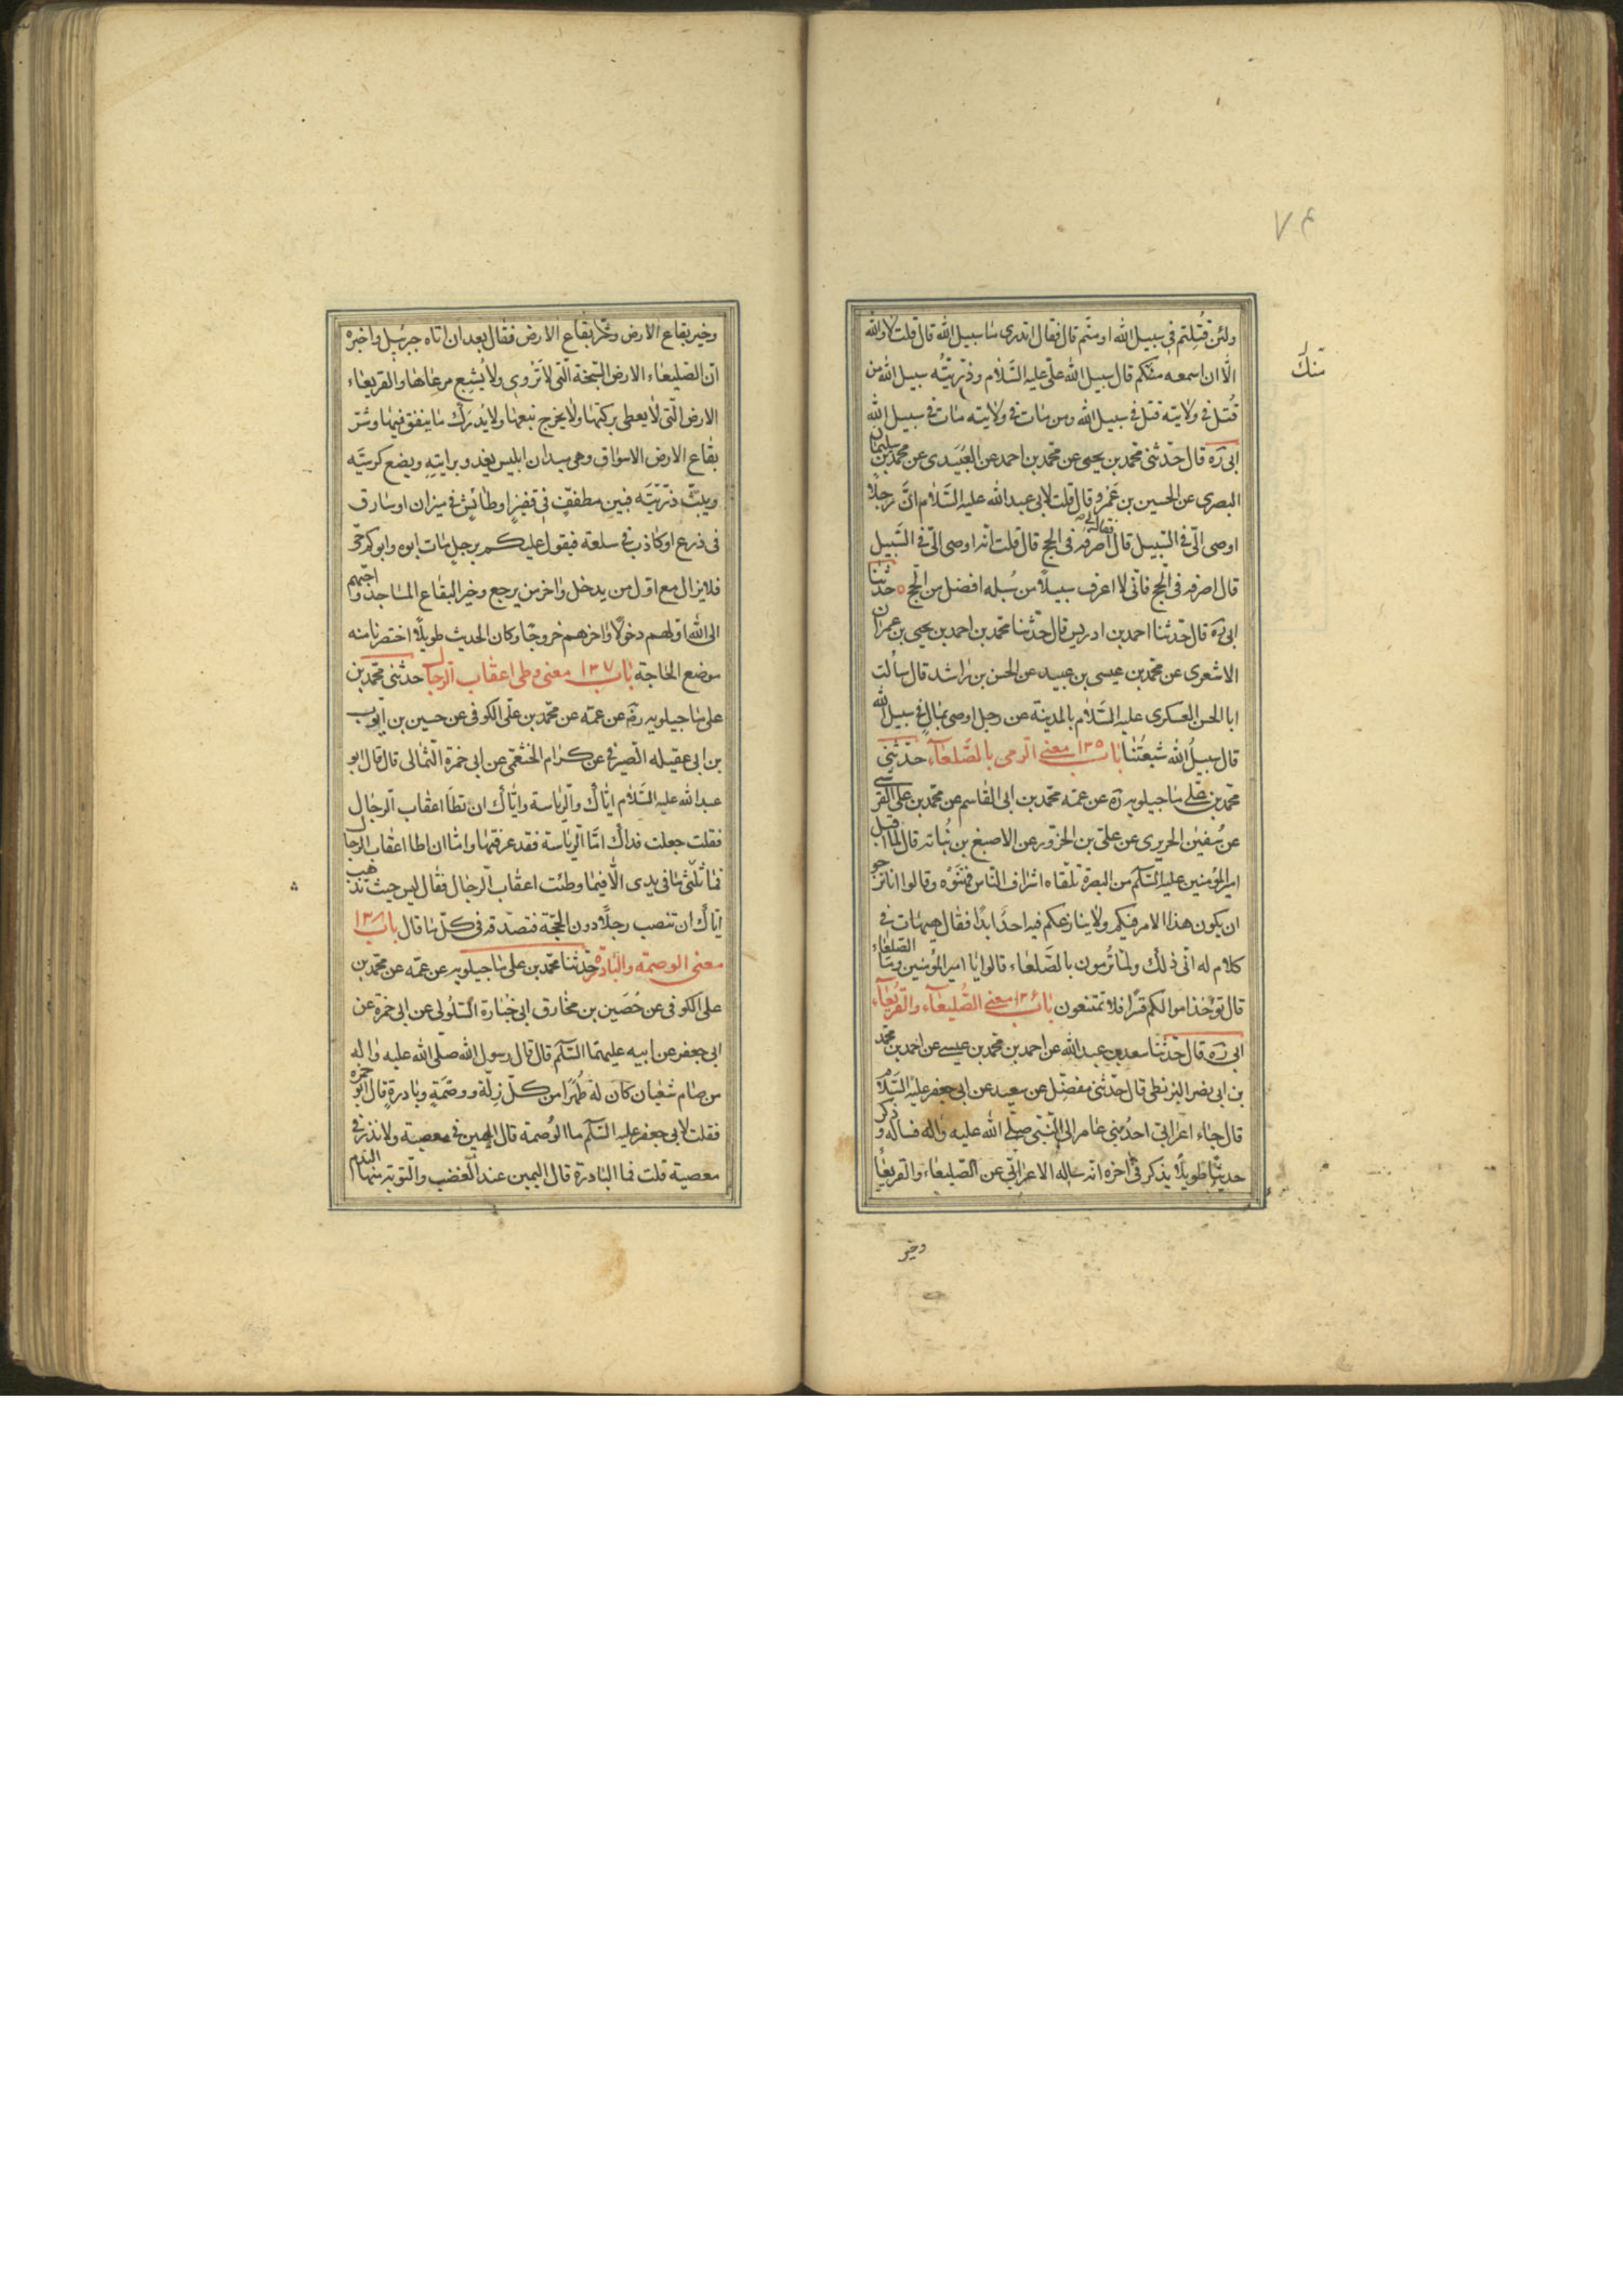 ٧٤
ولئن قُتِلتم فى سبيل الله او متّم قال فقال اتدرى ما سبيل الله قال قلت لا والله
الّا ان اسمعه منكم قال سبيل الله علىّ عليه السَّلام وذرّيّته سبيل الله من
منك
قُتل فى ولايته قتل فى سبيل الله ومن مات فى ولايته مات فى سبيل الله
ابى ره قال حدّثنى محمّد بن يحيى عن محمّد بن احمد عن العُبَيدى عن محمّد بن سليمان
البصرى عن الحسين بن عَمْرو قال قلت لابى عبد الله عليه السَّلام انَّ رجلًا
اوصى الىّ فى السّبيل قال فقال لى اصرفه فى الحج قال قلت انّه اوصى الىّ فى السَّبيل
قال اصرفه فى الحّج فانّى لا اعرف سبيلًا من سُبله افضل من الحّج ه حدّثنا
ابى ره قال حدّثنا احمد بن ادريس قال حدّثنا محمّد بن احمد بن يحيى بن عمران
الاشعرى عن محمّد بن عيسى بن عبيد عن الحسن بن راشد قال سألت
ابا الحسن العسكرى عليه السَّلام بالمدينة عن رجل اوصى بمالٍ فى سبيل الله
قال سبيلُ الله شيعَتُنا باب ١٣٥ معنى الرّمى بالصَّلعاء، حدّثنى
محمّد بن على ماجيلويه ره عن عمّه محمّد بن ابى القاسم عن محمّد بن على القرشى
عن سُفين الحريرى عن علىّ بن الحزّور عن الاصبغ بن نُباتة قال لمّا اقبل
امير المؤمنين عليه السّلم من البصرة تلقّاه اشراف النّاس فهنّوْه وقالوا انا نرجو
ان يكون هذا الامر فيكم ولا ينازعكم فيه احدٌ ابدًا فقال هيهات فى
كلام له انّى ذلك ولمّا تُرمون بالصَّلعاء قالوا يا امير المؤمنين وما الصّلعاء
قال تؤخذ اموالكم قسًرا فلا تمتنعون باب ١٣٦ معنى الصُّليعاء والقُريعاء،
ابى ره قال حدّثنا سعد بن عبد الله عن احمد بن محمّد بن عيسى عن احمد بن محمّد
بن ابى نصر البزنطى قال حدّثنى مفضّل عن سعيد عن ابى جعفر عليه السّلام
قال جاء اعرابىّ احدُ بنى عامر الى النّبى صلّى الله عليه واله فساله وذكر
حديثًا طويلًا يذكر فى اخره انّه ساله الاعرابىّ عن الصّليعاء والقريعاء
وخير
وخير بقاع الارض وشرّ بقاع الارض فقال بعد ان اتاه جبرئيل واخبره
انّ الصّليعاء الارض السّبخة الّتى لا تَرْوى ولا يُشبع مرعاها والقريعاء
الارض الّتى لا يعطى بركتها ولا يخرج نبعها ولا يُدرَك ما ينفق فيها وشرّ
بقاع الارض الاسواق وهى ميدان ابليس يغدو برايتِهِ ويضع كرسيَّه
ويبثّ ذرّيّتَه فبين مطففٍ فى قفيزٍ او طائشٍ فى ميزان او سارق
فى ذرع او كاذب فى سلعة فيقول عليكم برجلٍ مات ابوه وابوكم حىّ
فلا يزال مع اوّل من يدخل واخر من يرجع وخير البقاع المساجد واحبّهم
الى الله اوّلهم دخولًا واخرهم خروجًا وكان الحديث طويلًا اختصرنا منه
موضع الحاجة باب ١٣٧ معنى وطى اعقاب الرّجال حدّثنى محمّد بن
على ماجيلويه ره عن عمّه عن محمّد بن علىّ الكوفى عن حسين بن ايّوب
بن ابى عقيله الصّيرفى عن كرام الخثعمى عن ابى حمزة الثّمالى قال قال ابو
عبد الله عليه السَّلام ايّاك والرّياسة وايّاك ان تطَا اعقاب الرّجال
فقلت جعلت فداك امّا الرّياسة فقد عرفتها وامّا ان اطا اعقاب الرجال
فما ثلثى ما فى يدى الّا فيما وطئت اعقاب الرّجال فقال ليس حيث تذهب
ايّاك ان تنصب رجلًا دون الحجّة فتصدّقه فى كلّ ما قال باب ١٣٨
معنى الوصمة والبادرة حدّثنا محمّد بن على ماجيلويه عن عمّه عن محمّد بن
على الكوفى عن حُصَين بن مخارق ابى جُنادة السّلولى عن ابى حمزة عن
ابى جعفر عن ابيه عليهما السّلم قال قال رسول الله صلّى الله عليه واله
من صام شعبان كان له طُهْرًا من كلّ زلّة ووصْمَةٍ وبادرةٍ قال ابو حمزه
فقلت لابى جعفر عليه السّلم ما الوُصمة قال اليمين فى معصية ولا نذر فى
معصية قلت فما البادرة قال اليمين عند الغضب والتّوبة منها النّدم